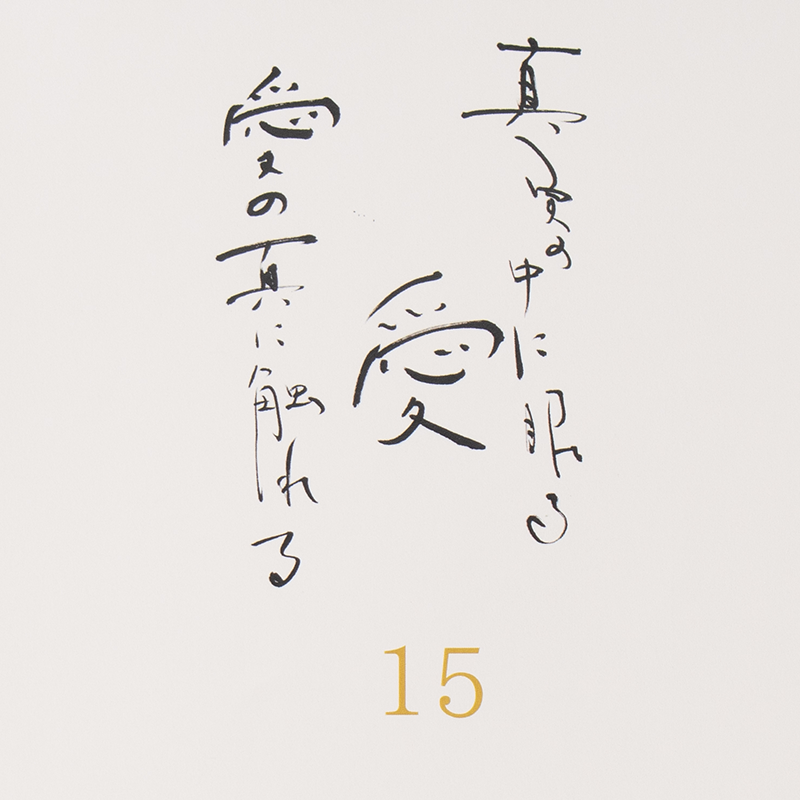 真実の中に眠る
愛
愛の真に触れる
15